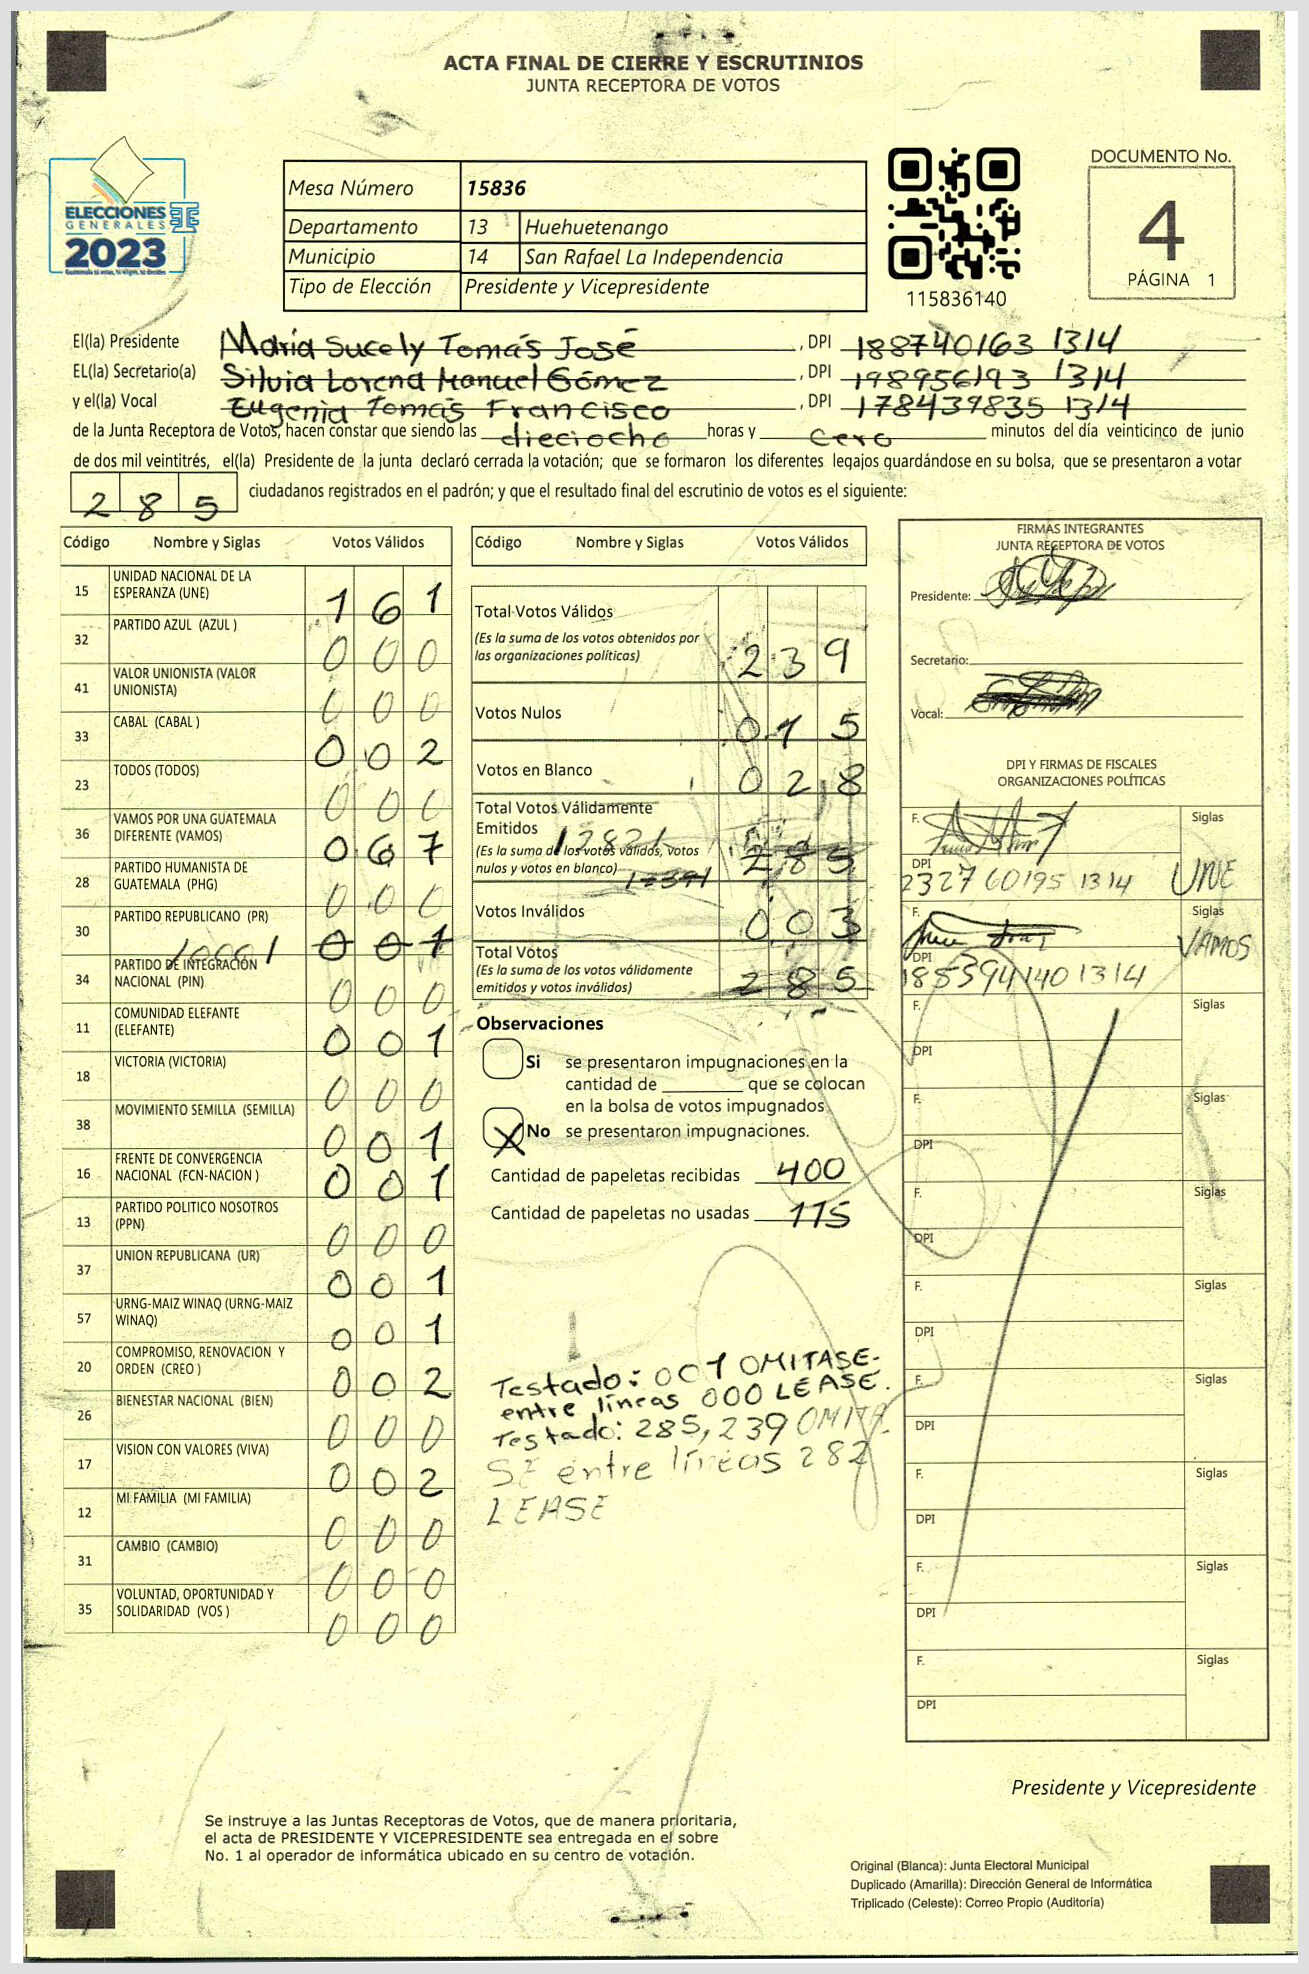 ACTA FINAL DE CIERRE Y ESCRUTINIOS
JUNTA RECEPTORA DE VOTOS
ELECCIONES
GENERALES
2023
Mesa Número 15836
Departamento 13 Huehuetenango
Municipio 14 San Rafael La Independencia
Tipo de Elección Presidente y Vicepresidente
115836140
DOCUMENTO No.
4
PÁGINA 1
El(la) Presidente María Sucely Tomás José , DPI 188740163 1314
EL(la) Secretario(a) Silvia Lorena Manuel Gómez , DPI 198956193 1314
y el(la) Vocal Eugenia Tomás Francisco , DPI 178439835 1314
de la Junta Receptora de Votos, hacen constar que siendo las dieciocho horas y cero minutos del día veinticinco de junio
de dos mil veintitrés, el(la) Presidente de la junta declaró cerrada la votación; que se formaron los diferentes legajos guardándose en su bolsa, que se presentaron a votar
285 ciudadanos registrados en el padrón; y que el resultado final del escrutinio de votos es el siguiente:
Código Nombre y Siglas Votos Válidos
15 UNIDAD NACIONAL DE LA
ESPERANZA (UNE) 161
32 PARTIDO AZUL (AZUL ) 000
41 VALOR UNIONISTA (VALOR
UNIONISTA) 000
33 CABAL (CABAL ) 002
23 TODOS (TODOS) 000
36 VAMOS POR UNA GUATEMALA
DIFERENTE (VAMOS) 067
28 PARTIDO HUMANISTA DE
GUATEMALA (PHG) 000
30 PARTIDO REPUBLICANO (PR) 001
34 PARTIDO DE INTEGRACIÓN
NACIONAL (PIN) 000
11 COMUNIDAD ELEFANTE
(ELEFANTE) 001
18 VICTORIA (VICTORIA) 000
38 MOVIMIENTO SEMILLA (SEMILLA) 001
16 FRENTE DE CONVERGENCIA
NACIONAL (FCN-NACION ) 001
13 PARTIDO POLITICO NOSOTROS
(PPN) 000
37 UNION REPUBLICANA (UR) 001
57 URNG-MAIZ WINAQ (URNG-MAIZ
WINAQ) 001
20 COMPROMISO, RENOVACION Y
ORDEN (CREO ) 002
26 BIENESTAR NACIONAL (BIEN) 000
17 VISION CON VALORES (VIVA) 002
12 MI FAMILIA (MI FAMILIA) 000
31 CAMBIO (CAMBIO) 000
35 VOLUNTAD, OPORTUNIDAD Y
SOLIDARIDAD (VOS ) 000
Código Nombre y Siglas Votos Válidos
Total Votos Válidos
(Es la suma de los votos obtenidos por
las organizaciones políticas) 239
Votos Nulos 015
Votos en Blanco 028
Total Votos Válidamente
Emitidos
(Es la suma de los votos válidos, votos
nulos y votos en blanco) 285
Votos Inválidos 003
Total Votos
(Es la suma de los votos válidamente
emitidos y votos inválidos) 285
Observaciones
Si se presentaron impugnaciones en la
cantidad de ________ que se colocan
en la bolsa de votos impugnados.
X No se presentaron impugnaciones.
Cantidad de papeletas recibidas 400
Cantidad de papeletas no usadas 115
Testado: 001 OMITASE.
entre líneas 000 LEASE.
Testado: 285, 239 OMITA
SE entre líneas 282
LEASE
FIRMAS INTEGRANTES
JUNTA RECEPTORA DE VOTOS
Presidente:
Secretario:
Vocal:
DPI Y FIRMAS DE FISCALES
ORGANIZACIONES POLÍTICAS
F. Siglas
DPI
2327 60195 1314 UNE
F. Siglas
VAMOS
DPI
185394140 1314
F. Siglas
DPI
F. Siglas
DPI
F. Siglas
DPI
F. Siglas
DPI
F. Siglas
DPI
F. Siglas
DPI
F. Siglas
DPI
F. Siglas
DPI
Presidente y Vicepresidente
Se instruye a las Juntas Receptoras de Votos, que de manera prioritaria,
el acta de PRESIDENTE Y VICEPRESIDENTE sea entregada en el sobre
No. 1 al operador de informática ubicado en su centro de votación.
Original (Blanca): Junta Electoral Municipal
Duplicado (Amarilla): Dirección General de Informática
Triplicado (Celeste): Correo Propio (Auditoría)